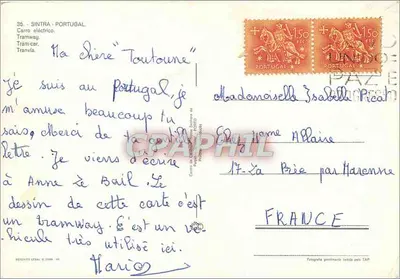 35. - SINTRA - PORTUGAL.
Carro eléctrico.
Tramway.
Tramcar.
Tranvía.
Ma chère "Toutoune"
Je suis au Portugal, je
m'amuse beaucoup tu
sais. Merci de ta gentille
lettre. Je viens d'écrire
à Anne Le Bail. Le
dessin de cette carte c'est
un tramway. C'est un vé-
hicule très utilisé ici.
Mario
1$50
PORTUGAL
1$50
PORTUGAL
UNIDO
PAZ
Mademoiselle Isabelle Picat
Chez Mame Allaire
17. La Prée par Marennes
FRANCE
GRAPHIL